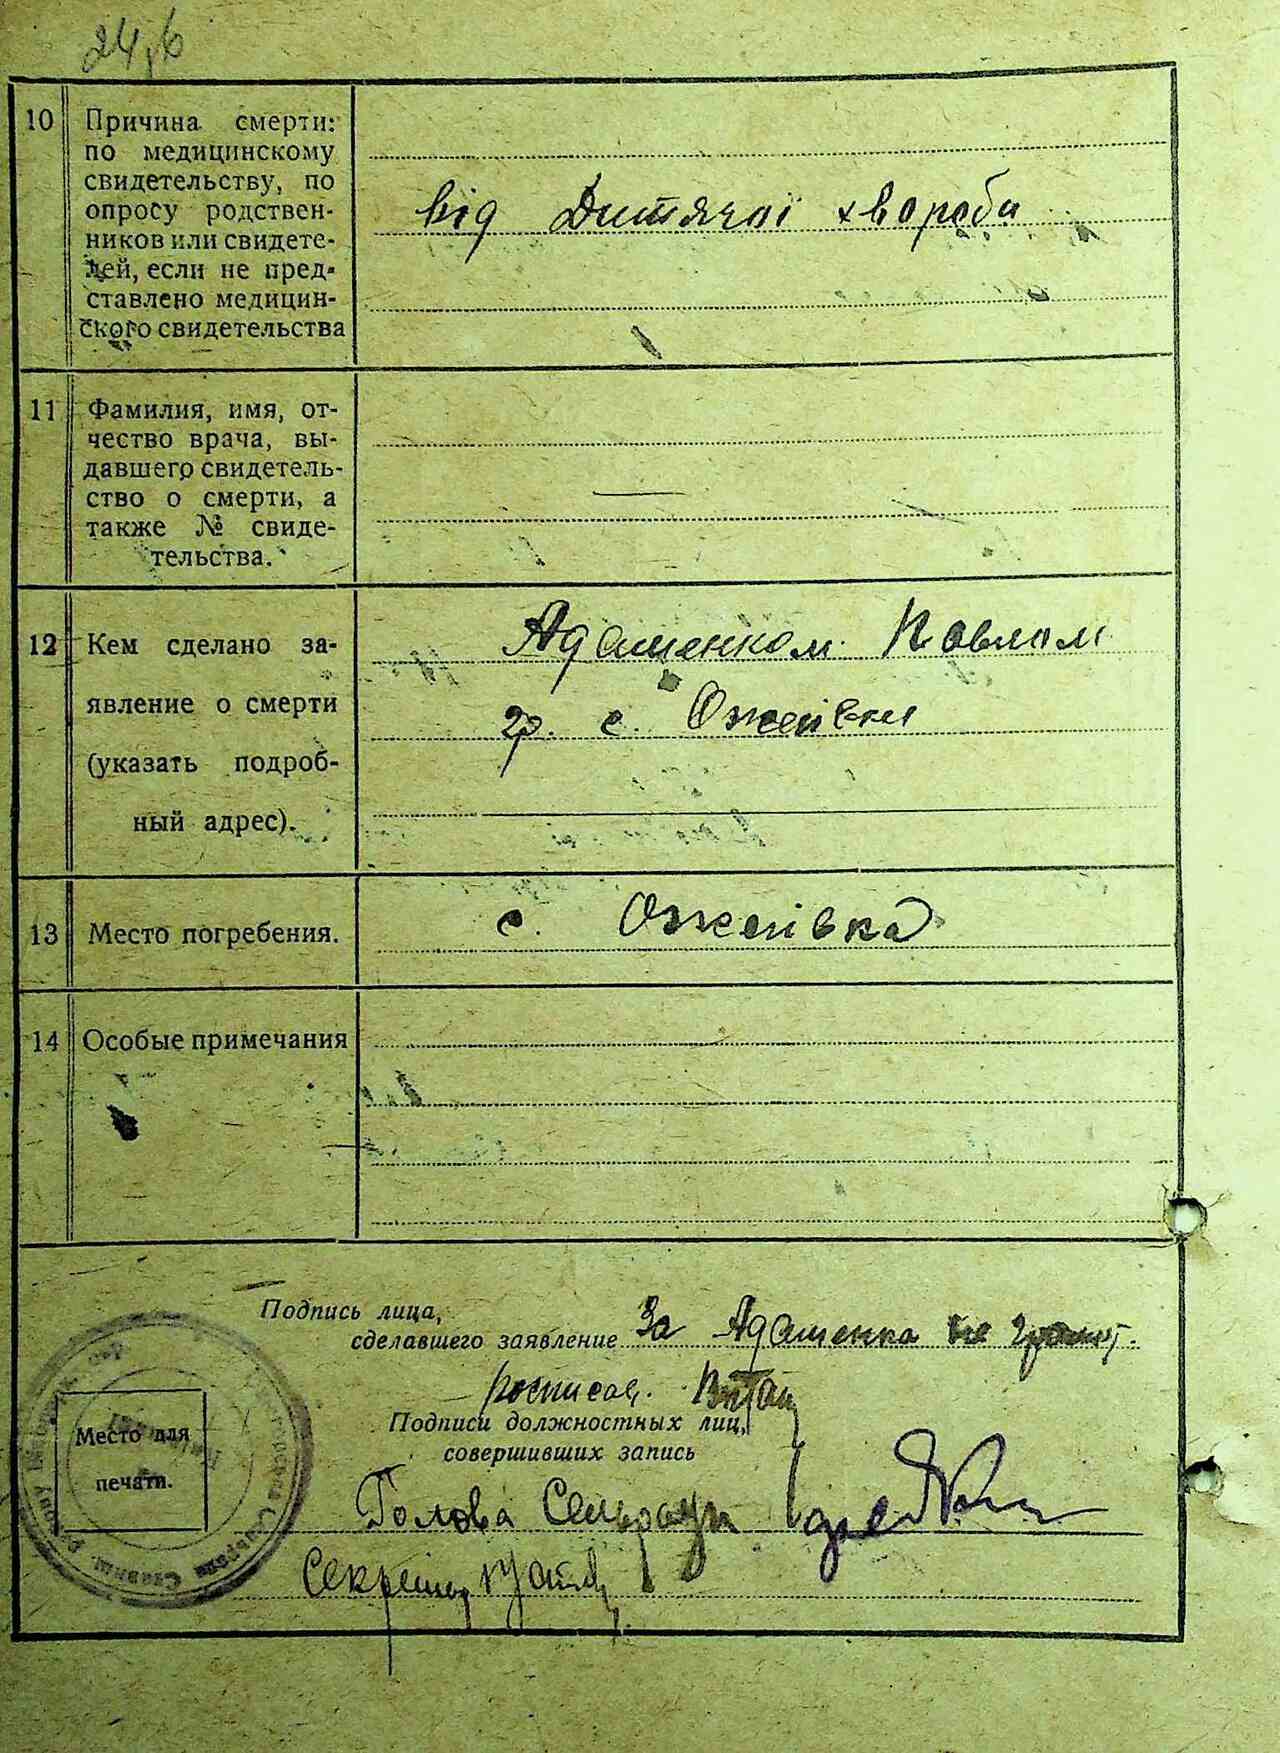 24,6
10 Причина смерти:
по медицинскому
свидетельству, по
опросу родствен-
ников или свидете-
лей, если не пред-
ставлено медицин-
ского свидетельства
від Дитячої хвороби
11 Фамилия, имя, от-
чество врача, вы-
давшего свидетель-
ство о смерти, а
также № свиде-
тельства.
12 Кем сделано за-
явление о смерти
(указать подроб-
ный адрес).
Адаменком Павлом
гр. с. Ожеївки
13 Место погребения.
с. Ожеївка
14 Особые примечания
Подпись лица,
сделавшего заявление За Адаменка не грамот.
росписав.
Подписи должностных лиц,
совершивших запись
Место для
печати.
Голова Сельради
Секретар